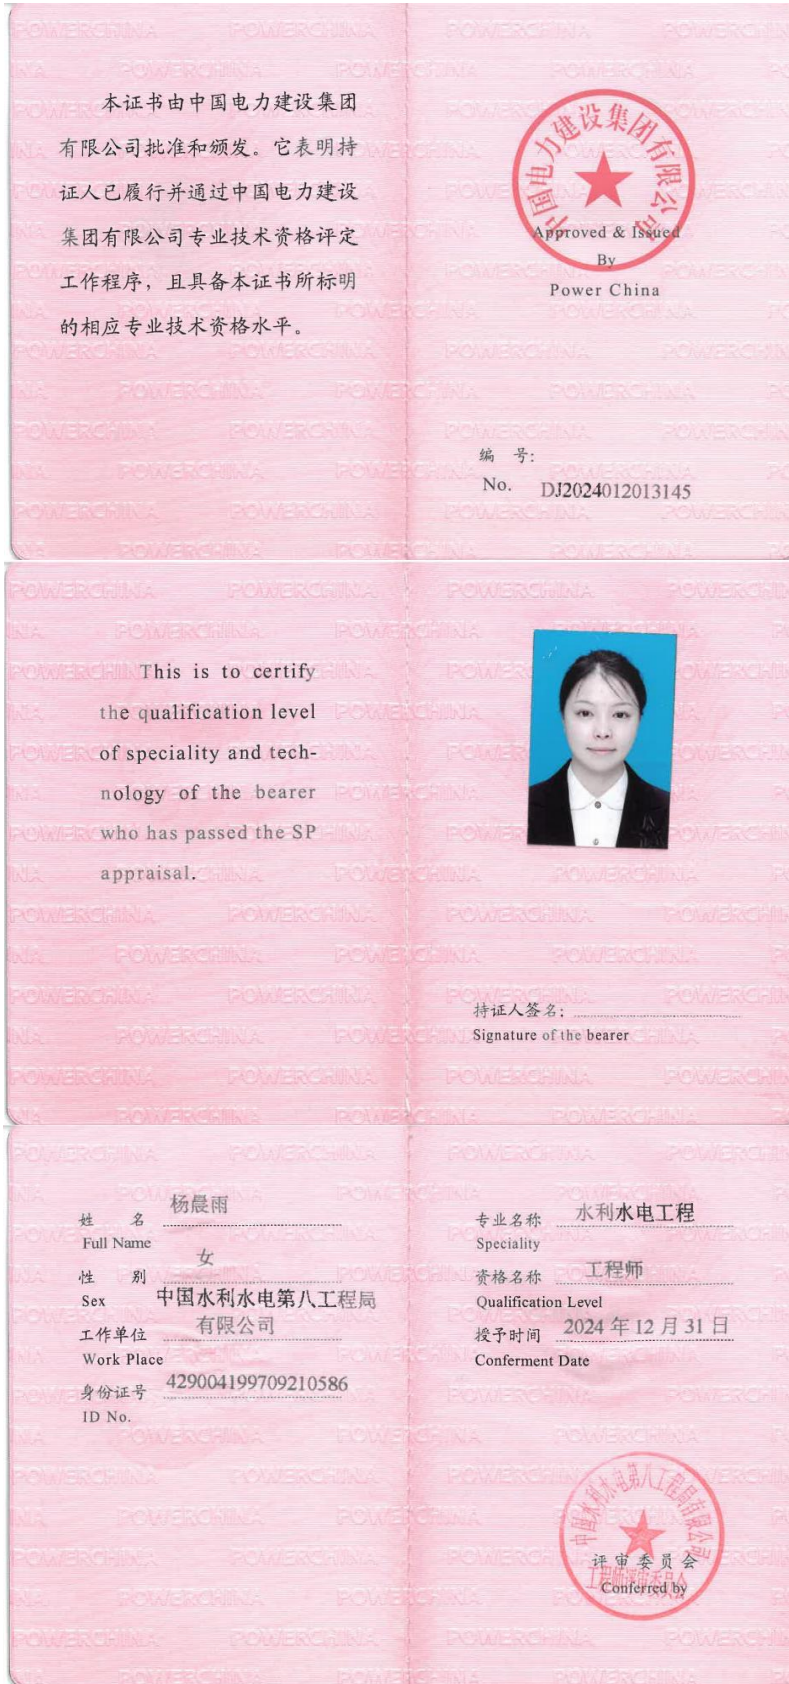 本证书由中国电力建设集团
有限公司批准和颁发。它表明持
证人已履行并通过中国电力建设
集团有限公司专业技术资格评定
工作程序，且具备本证书所标明
的相应专业技术资格水平。
中国电力建设集团有限公司
Approved & Issued
By
Power China
编 号:
No. DJ2024012013145
This is to certify
the qualification level
of speciality and tech-
nology of the bearer
who has passed the SP
appraisal.
持证人签名:
Signature of the bearer
姓 名 杨晨雨
Full Name
性 别 女
Sex
中国水利水电第八工程局
工作单位 有限公司
Work Place
身份证号 429004199709210586
ID No.
专业名称 水利水电工程
Speciality
资格名称 工程师
Qualification Level
授予时间 2024 年 12 月 31 日
Conferment Date
中国水利水电第八工程局有限公司
评审委员会
工程师评审委员会
Conferred by
POWERCHINA